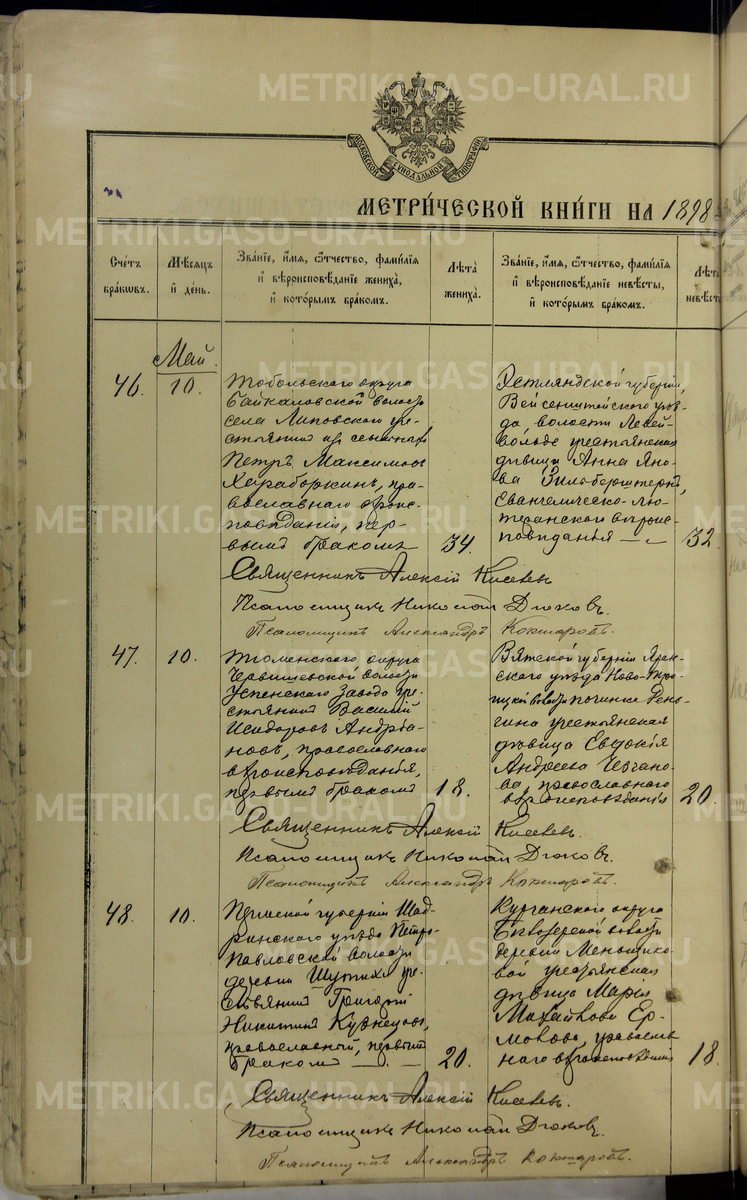 METRIKI.GASO-URAL.RU
МОСКОВСКОЙ СУНОДАЛЬНОЙ ТИПОГРАФІИ
МЕТРИ́ЧЕСКОЙ КНИ́ГИ НА 1898
Сче́тъ бра́кѡвъ.
Мѣ́сѧцъ и҆ де́нь.
Зва́нїе, и҆́мѧ, ѻ҆́тчество, фами́лїѧ
и҆ вѣроисповѣ́данїе жениха̀,
и҆ кото́рымъ бра́комъ.
Лѣ́та жениха̀.
Зва́нїе, и҆́мѧ, ѻ҆́тчество, фами́лїѧ
и҆ вѣроисповѣ́данїе невѣ́сты,
и҆ кото́рымъ бра́комъ.
Лѣ́та невѣ́ст
Май
46.
10.
Тобольскаго округа
Байкаловской волости
села Липовскаго кре-
стьянинъ изъ ссыльныхъ
Петръ Максимовъ
Хараборкинъ, пра-
вославнаго вѣроис-
повѣданія, пер-
вымъ бракомъ
34.
Эстляндской губерніи,
Вейсенштейнскаго уѣз-
да, волости
вольде крестьянская
дѣвица Анна Яно-
ва Зильберштернъ,
Евангелическо-лю-
теранскаго вѣроис-
повѣданія
32
Священникъ Алексій
Псаломщикъ Николай Дюковъ.
Псаломщикъ Александръ Кокшаровъ.
47.
10.
Тюменскаго округа
Червишевской волости
Успенскаго Завода кре-
стьянинъ Василій
Исидоровъ Андрія-
новъ, православнаго
вѣроисповѣданія,
первымъ бракомъ
18.
Вятской губерніи Яран-
скаго уѣзда Ново-Тро-
ицкой волости починка
крестьянская
дѣвица Евдокія
Андреева
ва, православнаго
вѣроисповѣданія
20.
Священникъ Алексій
Псаломщикъ Николай Дюковъ.
Псаломщикъ Александръ Кокшаровъ.
48.
10.
Пермской губерніи Шад-
ринскаго уѣзда Петро-
Павловской волости
деревни Шутихи кре-
стьянинъ Григорій
Никитинъ Кузнецовъ,
православный, первымъ
бракомъ
20.
Курганскаго округа
Бѣлозерской волости
деревни Меньщико-
вой крестьянская
дѣвица Марія
Михайлова Ер-
макова, православ-
наго вѣроисповѣданія
18.
Священникъ Алексій
Псаломщикъ Николай Дюковъ.
Псаломщикъ Александръ Кокшаровъ.